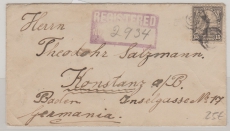 REGISTERED
2934
Herrn
Theodor Salzmann.
Konstanz a/B.
Baden Inselgasse Nr 17
Germania.
25€